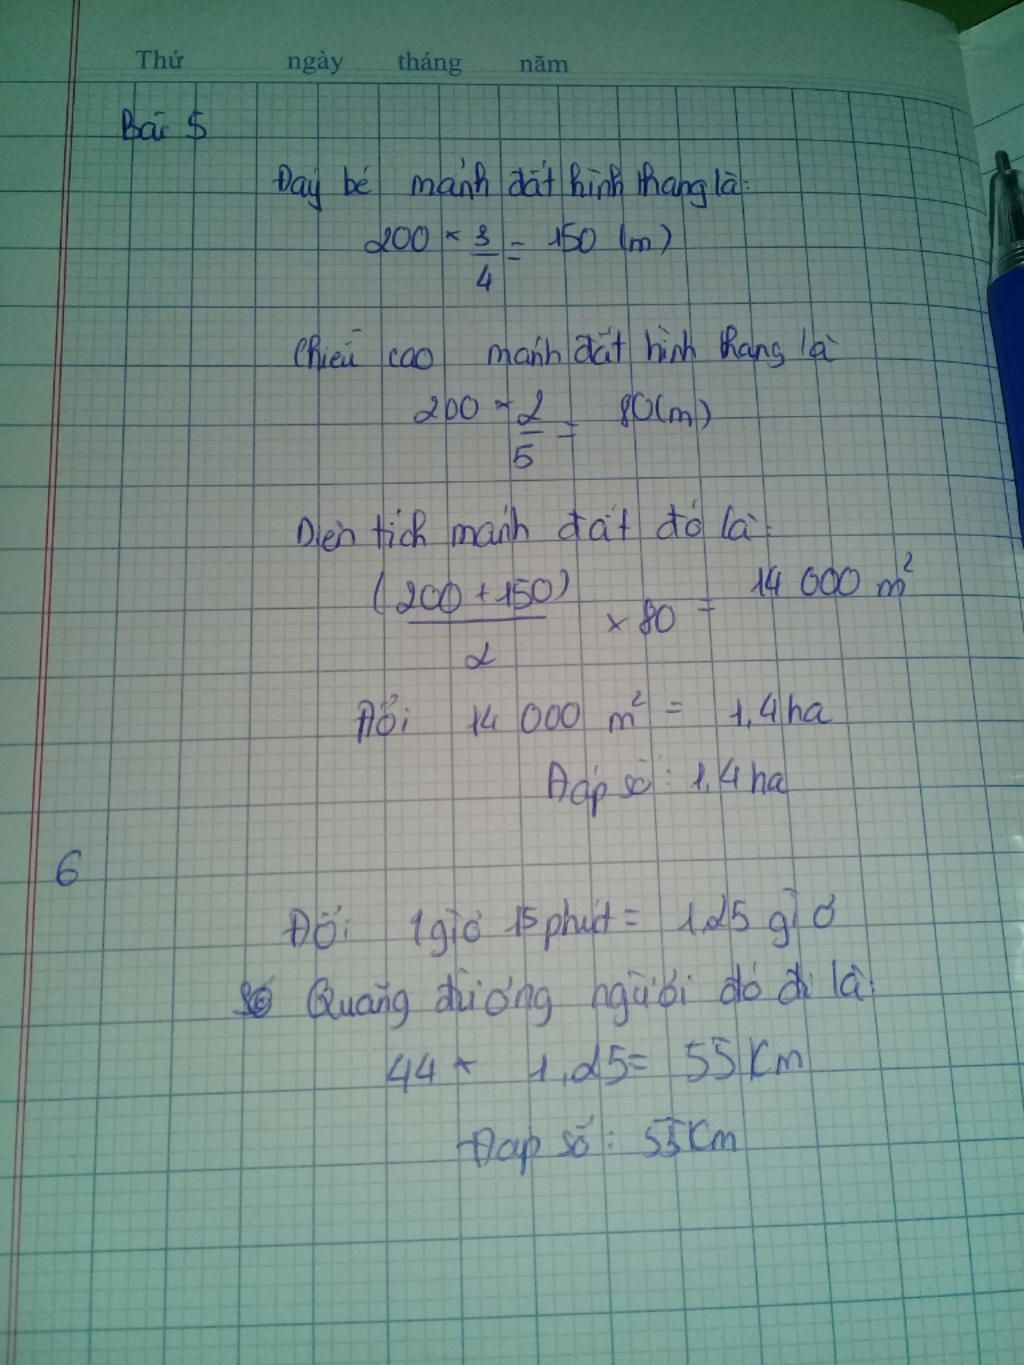 Thứ ngày tháng năm
Bài 5
Đáy bé mảnh đất hình thang là:
200 × 3/4 = 150 (m)
Chiều cao mảnh đất hình thang là
200 × 2/5 = 80(m)
Diện tích mảnh đất đó là:
(200 + 150)/2 × 80 = 14 000 m²
Đổi 14 000 m² = 1,4 ha
Đáp số: 1,4 ha
6
Đổi: 1 giờ 15 phút = 1,25 giờ
Quãng đường người đó đi là:
44 × 1,25 = 55 Km
Đáp số: 55 Km